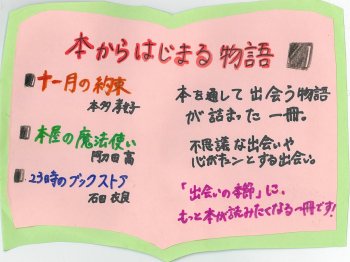 本からはじまる物語
十一月の約束
本多 孝好
本屋の魔法使い
門田 高
23時のブックストア
石田 衣良
本を通して出会う物語
が詰まった一冊。
不思議な出会いや
心がキュンとする出会い。
「出会いの季節」に、
もっと本が読みたくなる一冊です!